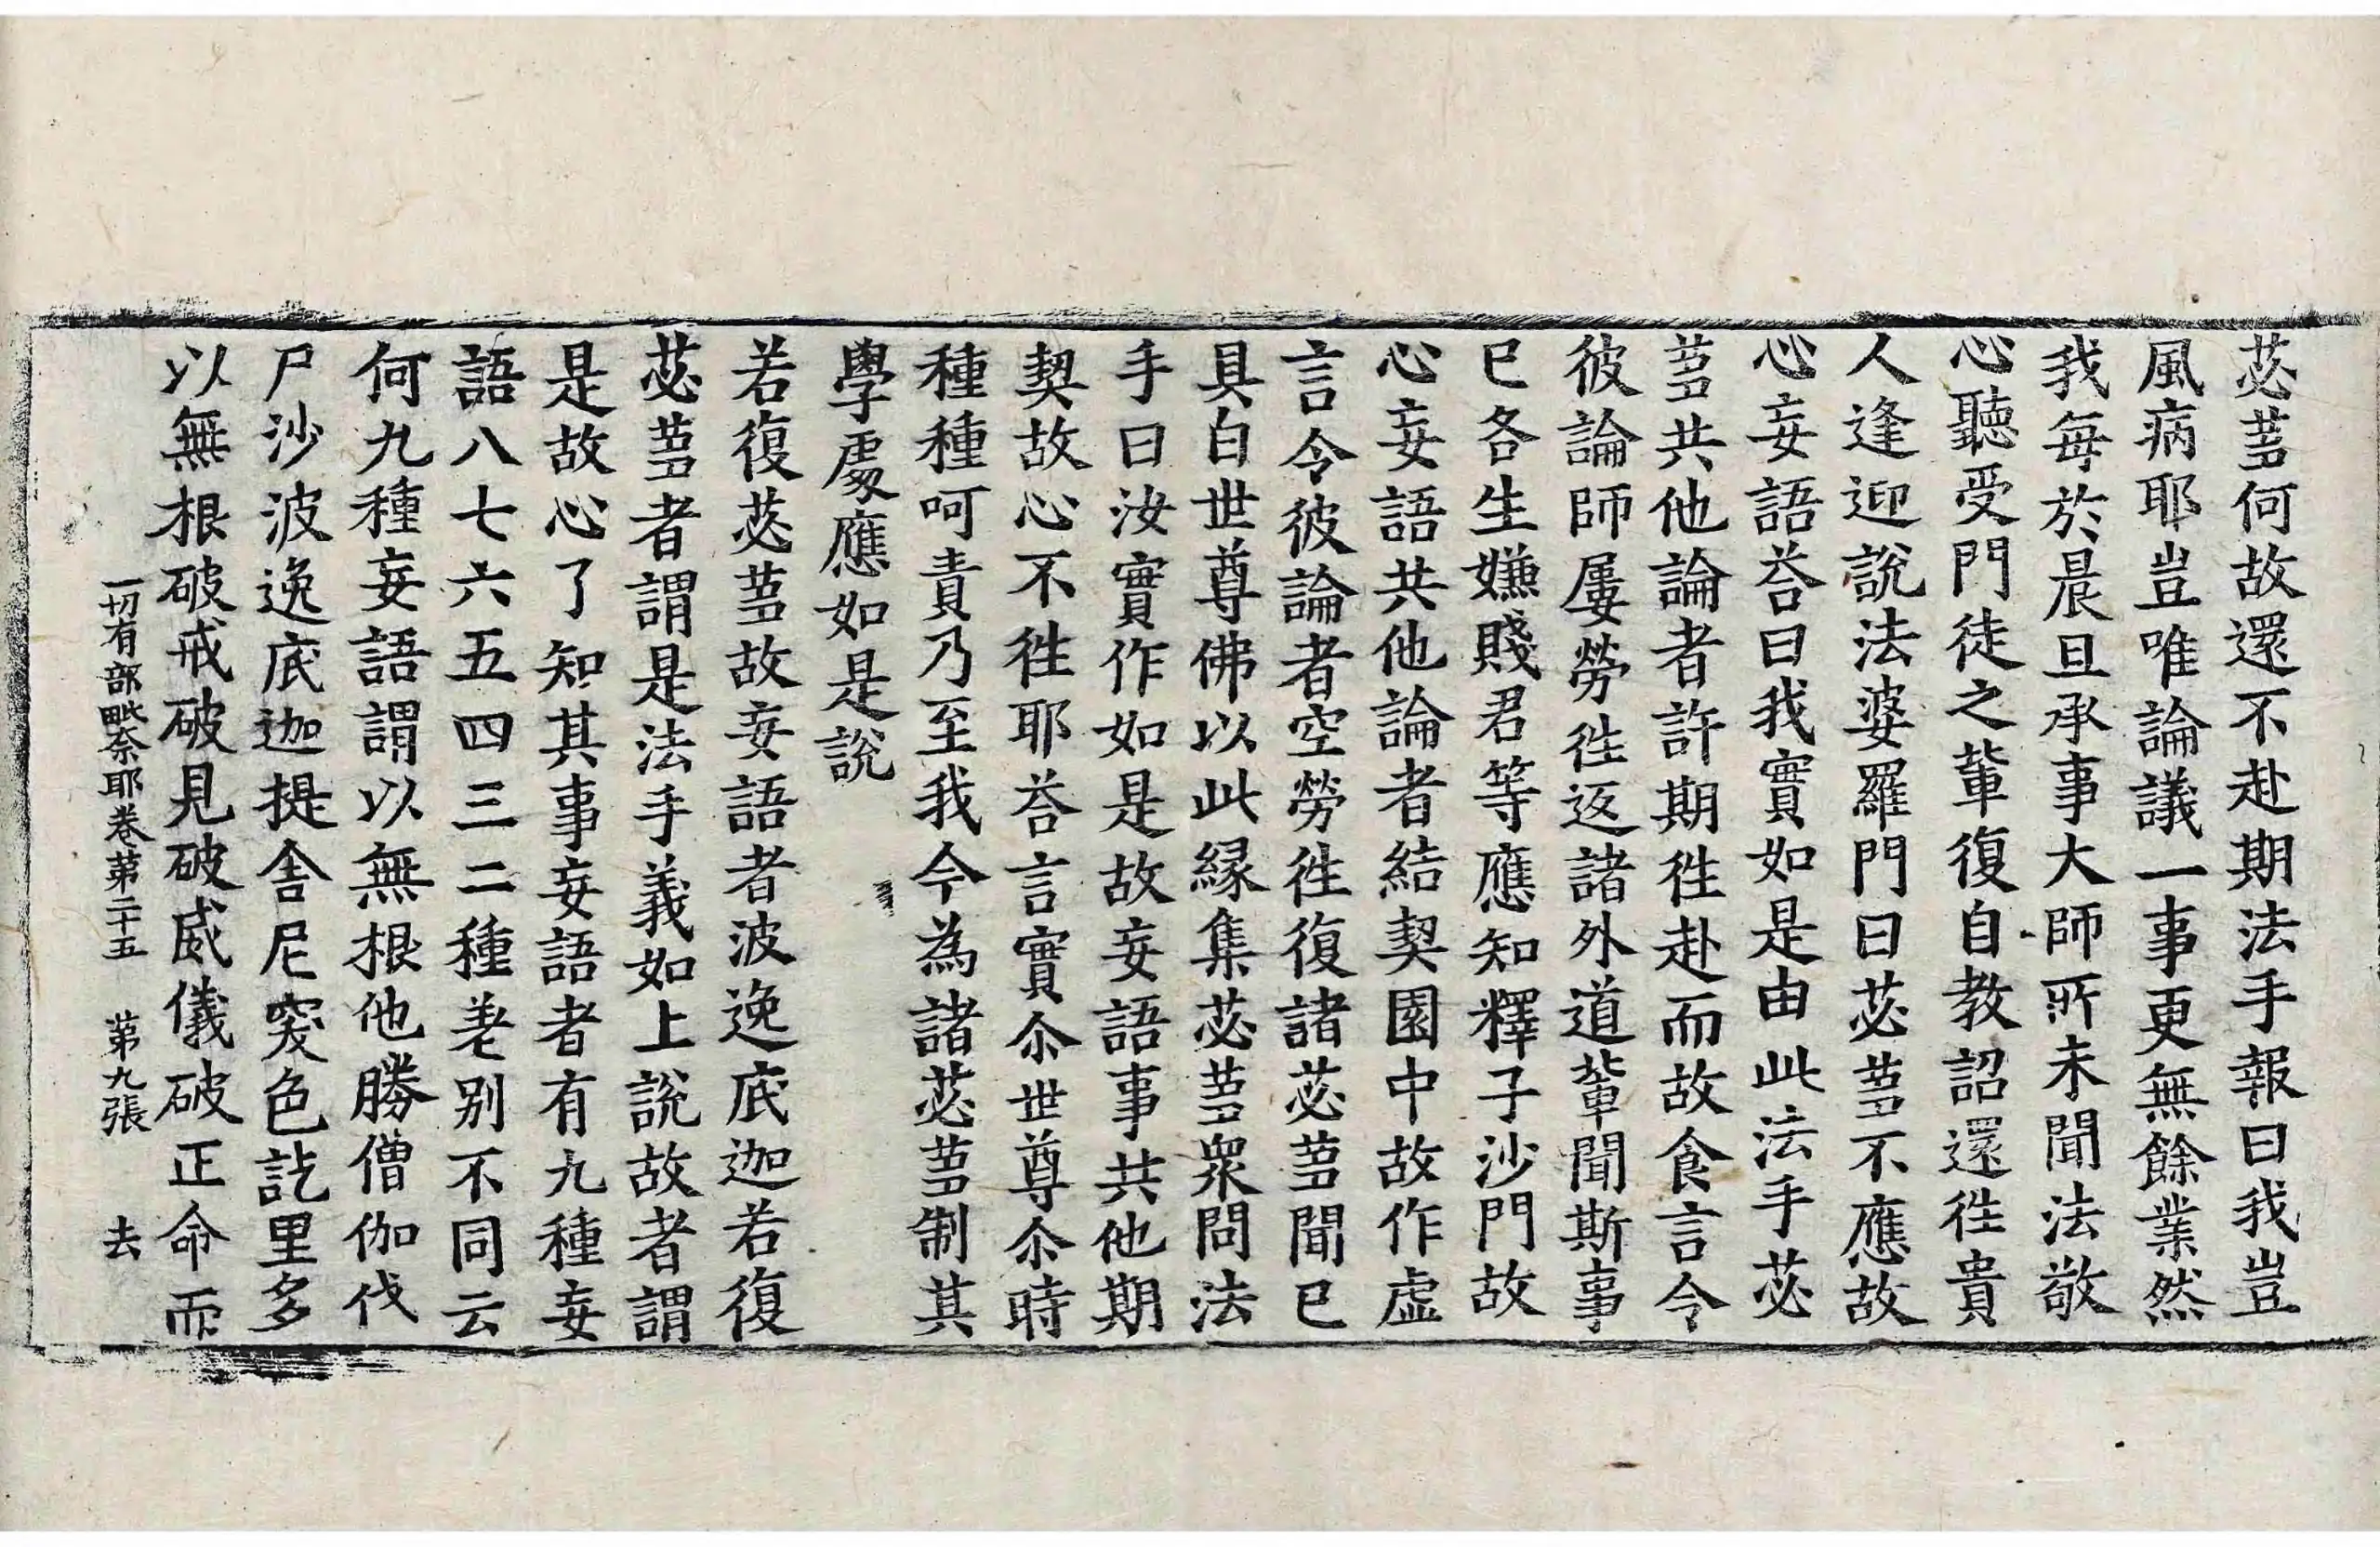 苾蒭何故還不赴期法手報曰我豈
風病耶豈唯論議一事更無餘業然
我每於晨旦承事大師所未聞法敬
心聽受門徒之輩復自教詔還徃貴
人逢迎說法婆羅門曰苾蒭不應故
心妄語荅曰我實如是由此法手苾
蒭共他論者許期徃赴而故食言令
彼論師屢勞徃返諸外道輩聞斯事
已各生嫌賤君等應知釋子沙門故
心妄語共他論者結契園中故作虛
言令彼論者空勞徃復諸苾蒭聞已
具白世尊佛以此緣集苾蒭衆問法
手曰汝實作如是故妄語事共他期
契故心不徃耶荅言實尒世尊尒時
種種呵責乃至我今為諸苾蒭制其
學處應如是說
若復苾蒭故妄語者波逸底迦若復
苾蒭者謂是法手義如上說故者謂
是故心了知其事妄語者有九種妄
語八七六五四三二種差别不同云
何九種妄語謂以無根他勝僧伽伐
尸沙波逸底迦提舍尼突色訖里多
以無根破戒破見破威儀破正命而
一切有部毗奈耶卷第二十五　第九張　去